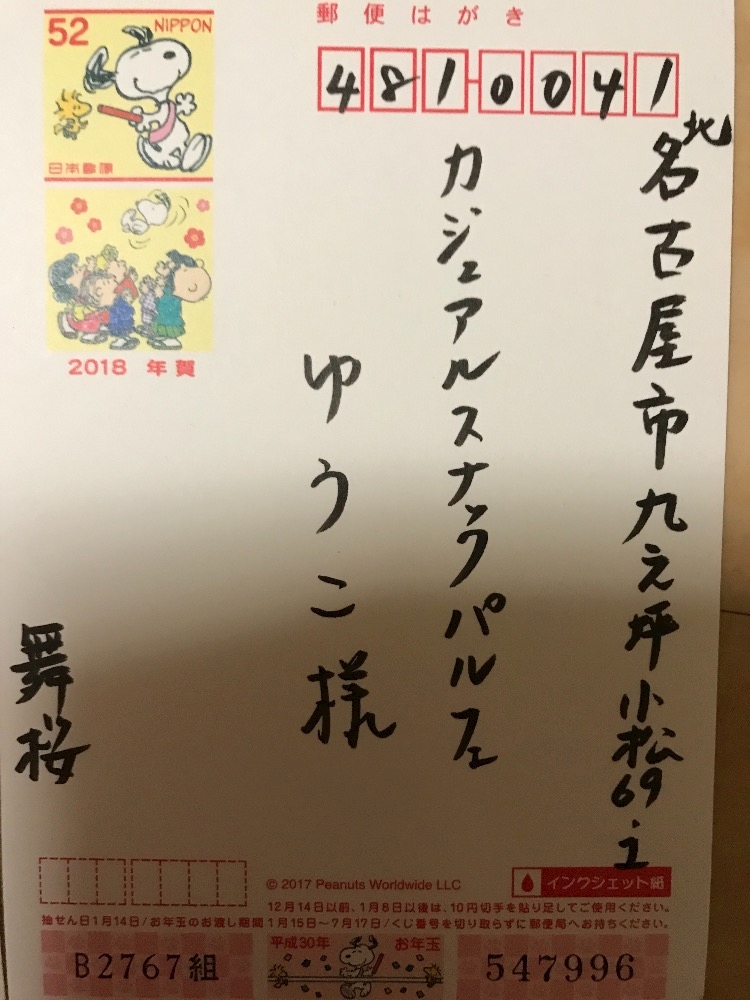 52
NIPPON
日本郵便
2018 年賀
郵便はがき
481-0041
北名古屋市九之坪小松69-1
カジュアルスナックパルフェ
ゆうこ様
舞桜
© 2017 Peanuts Worldwide LLC
インクジェット紙
12月14日以前、1月8日以後は、10円切手を貼り足してご使用ください。
抽せん日1月14日/お年玉のお渡し期間1月15日〜7月17日/くじ番号を切り取らずに郵便局へお持ちください。
平成30年 お年玉
B2767組
547996